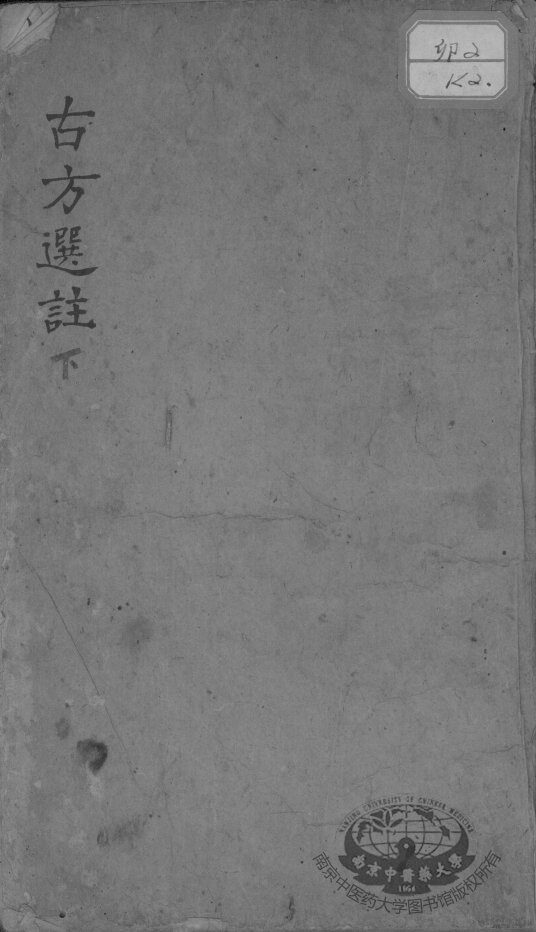 古方選註下
卯2
K2.
NANJING UNIVERSITY OF CHINESE MEDICINE
南京中醫藥大學
1954
南京中医药大学图书馆版权所有